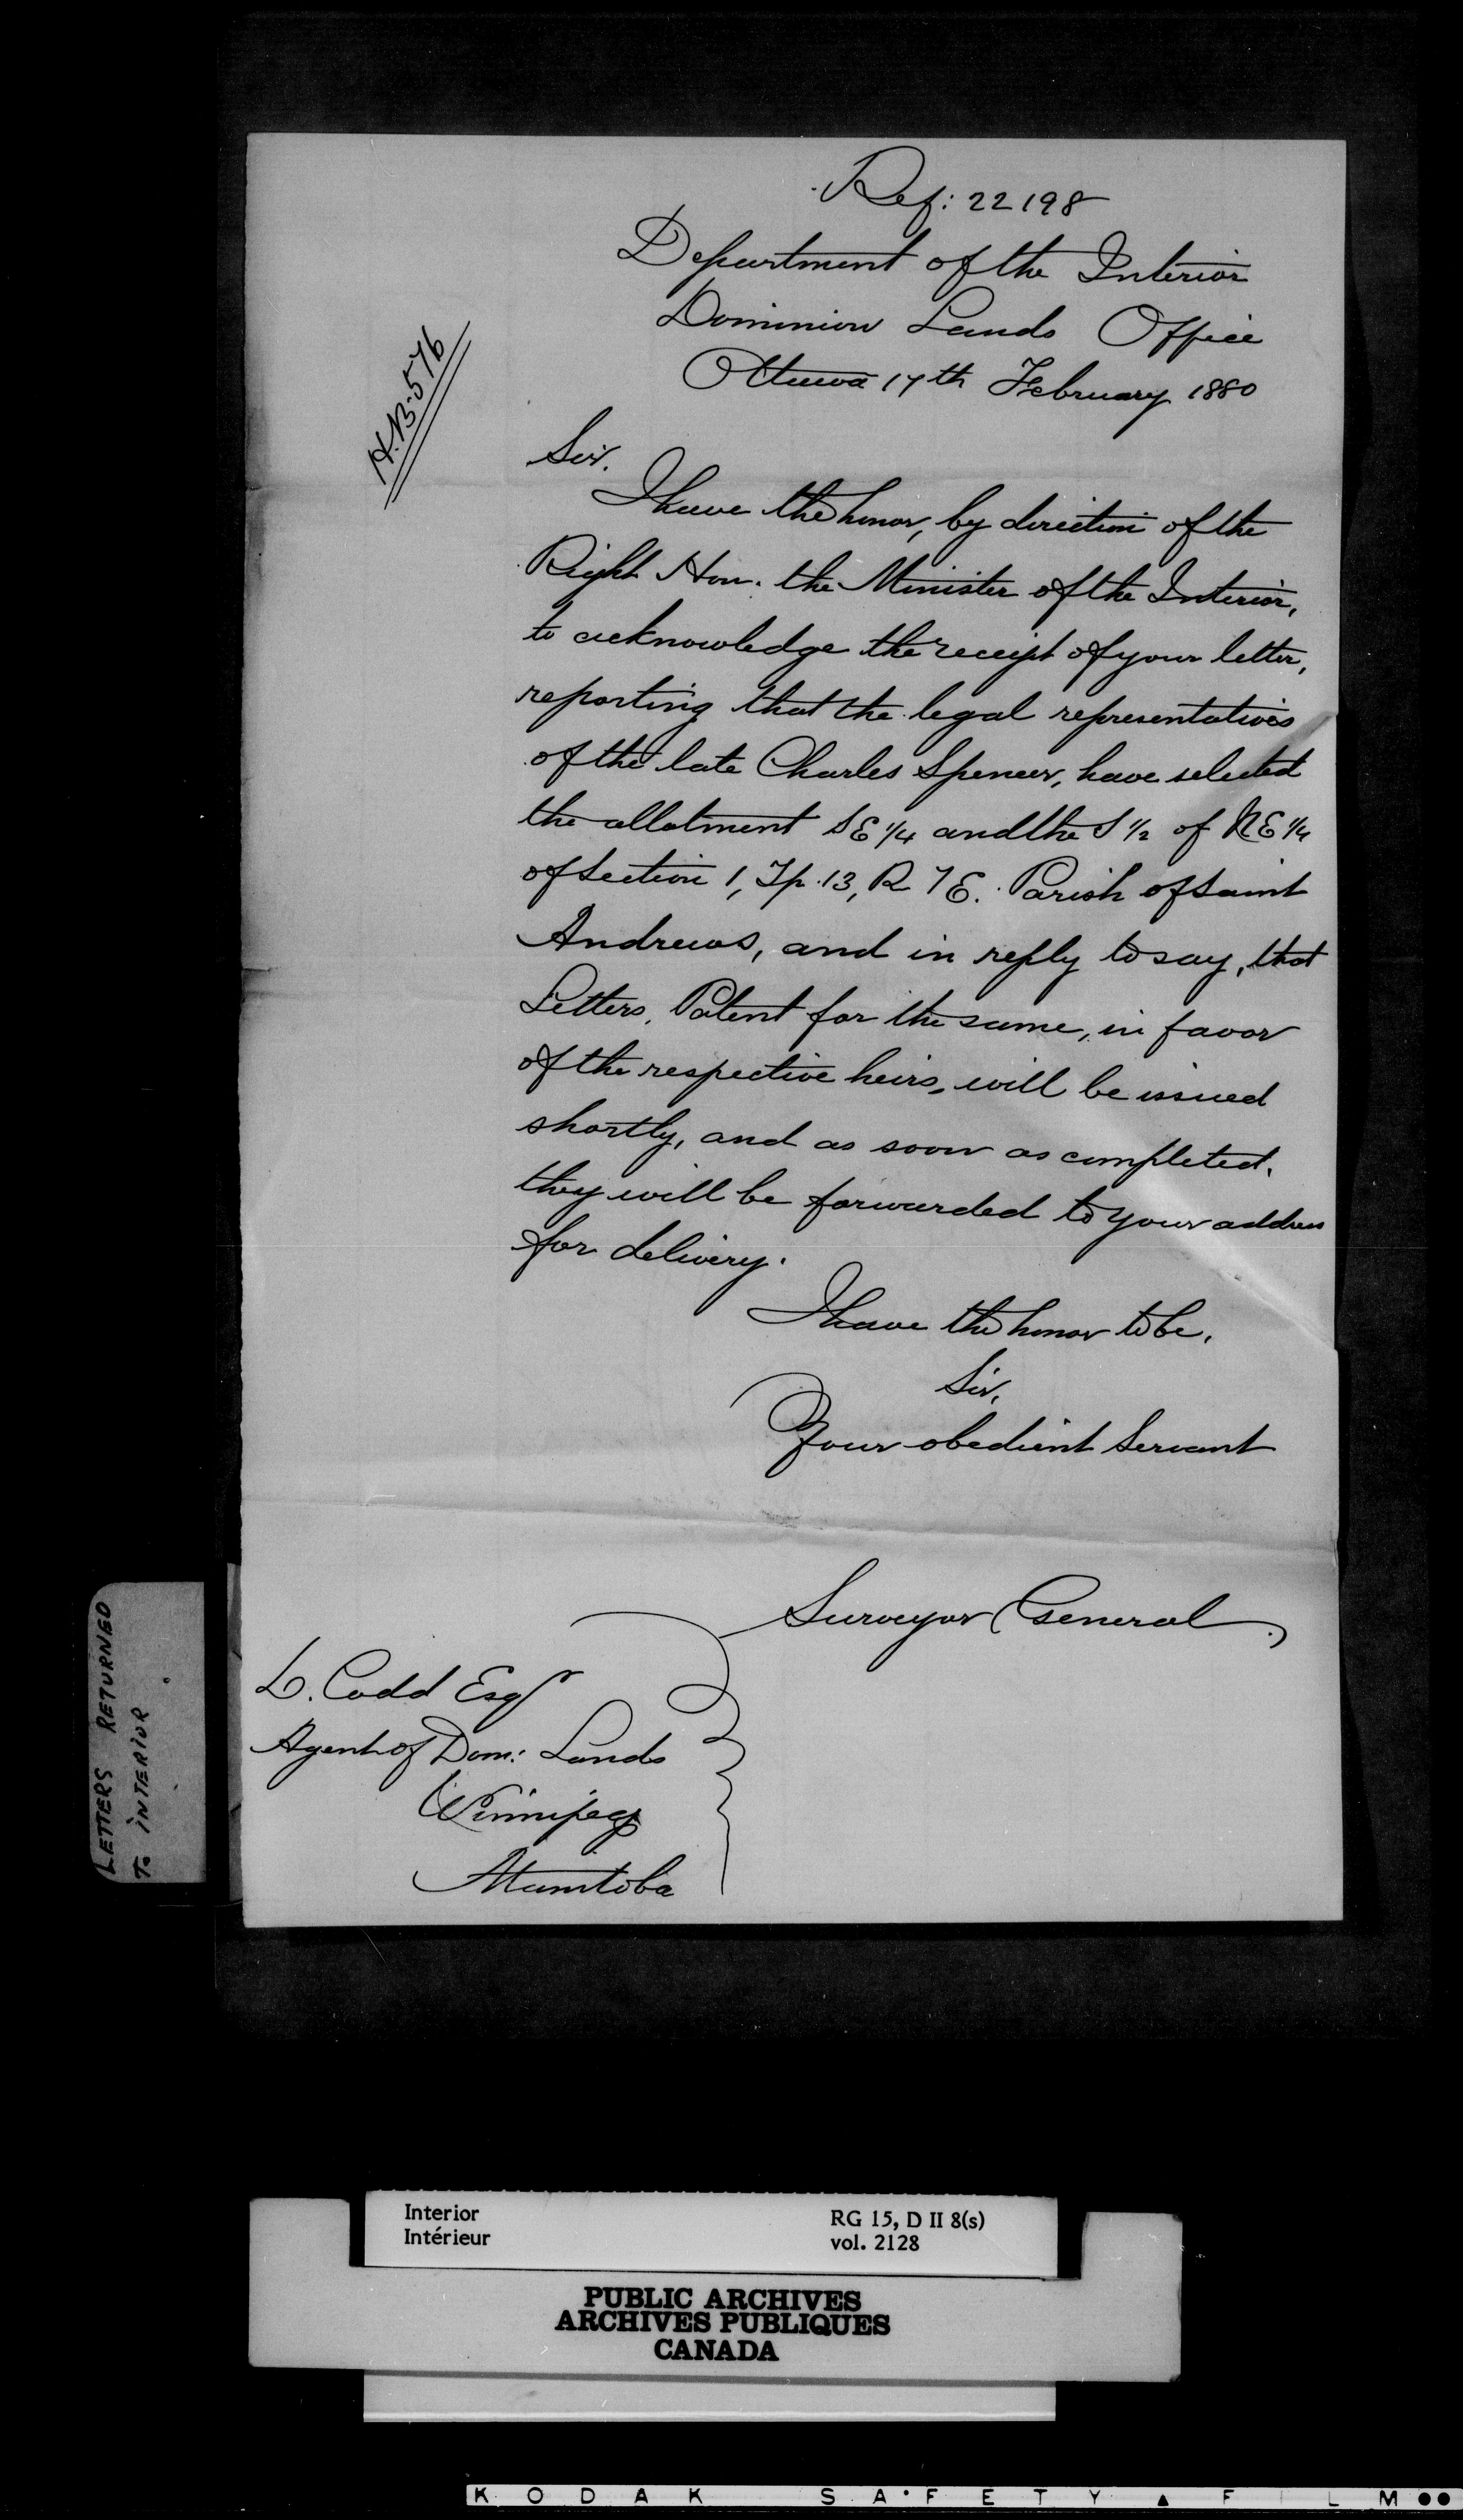 Ref: 22198
Department of the Interior
Dominion Lands Office
Ottawa 17th February 1880
H.B. 576
Sir.
I have the honor, by direction of the
Right Hon. the Minister of the Interior,
to acknowledge the receipt of your letter,
reporting that the legal representatives
of the late Charles Spencer, have selected
the allotment SE 1/4 and the S 1/2 of NE 1/4
of section 1, Tp. 13, R 7 E. Parish of Saint
Andrews, and in reply to say, that
Letters Patent for the same, in favor
of the respective heirs, will be issued
shortly, and as soon as completed.
they will be forwarded to your address
for delivery.
I have the honor to be.
Sir,
Your obedient Servant
Surveyor General.
L. Codd Esqr
Agent of Dom: Lands
Winnipeg
Manitoba
LETTERS RETURNED
To INTERIOR
Interior
Intérieur
RG 15, D II 8(s)
vol. 2128
PUBLIC ARCHIVES
ARCHIVES PUBLIQUES
CANADA
KODAK SAFETY FILM